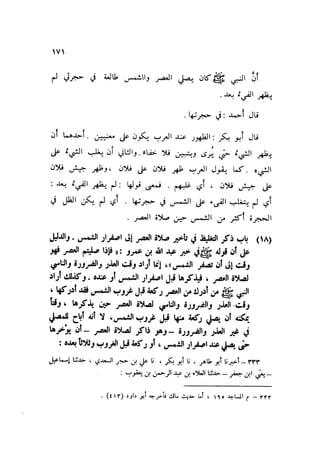 ١٧١
أن النبي ﷺ كان يصلي العصر والشمس طالعة في حجرتي لم
يظهر الفيء بعد .
قال أحمد : في حجرتها .
قال أبو بكر : الظهور عند العرب يكون على معنيين . أحدهما أن
يظهر الشيء حتى يُرى ويتبين فلا خفاء . والثاني أن يغلب الشيء على
الشيء . كما يقول العرب ظهر فلان على فلان ، وظهر جيش فلان
على جيش فلان ، أي غلبهم . فمعنى قولها : لم يظهر الفيء بعد :
أي لم يتغلب الفيء على الشمس في حجرتها . أي لم يكن الظل في
الحجرة أكثر من الشمس حين صلاة العصر .
(١٨) باب ذكر التغليظ في تأخير صلاة العصر إلى اصفرار الشمس . والدليل
على أن قوله ﷺ في خبر عبد الله بن عمرو : « فإذا صليتم العصر فهو
وقت إلى أن تصفر الشمس » ، إنما أراد وقت العذر والضرورة والناسي
لصلاة العصر ، فيذكرها قبل اصفرار الشمس أو عنده . وكذلك أراد
النبي ﷺ من أدرك من العصر ركعة قبل غروب الشمس فقد أدركها ،
وقت العذر والضرورة والناسي لصلاة العصر حين يذكرها ، وقتاً
يمكنه أن يصلي ركعة منها قبل غروب الشمس ، لا أنه أباح للمصلي
في غير العذر والضرورة – وهو ذاكر لصلاة العصر – أن يؤخرها
حتى يصلي عند اصفرار الشمس ، أو ركعة قبل الغروب وثلاثاً بعده :
٣٣٣ – أخبرنا أبو طاهر ، نا أبو بكر ، نا علي بن حجر السعدي ، حدثنا إسماعيل
– يعني ابن جعفر – حدثنا العلاء بن عبد الرحمن بن يعقوب :
٣٣٣ – م المساجد ١٩٥ ، أما حديث مالك فأخرجه أبو داود (٤١٣) .